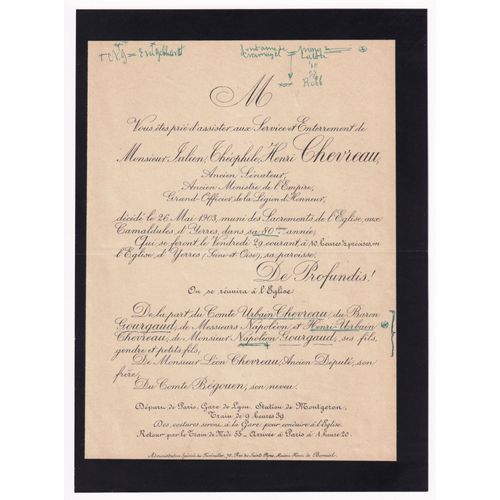 M
Vous êtes prié d'assister aux Service et Enterrement de
Monsieur Julien, Théophile, Henri Chevreau,
Ancien Sénateur,
Ancien Ministre de l'Empire,
Grand-Officier de la Légion d'Honneur,
décédé le 26 Mai 1903, muni des Sacrements de l'Eglise, aux
Camaldules d'Yerres, dans sa 80ème année,
Qui se feront le Vendredi 29, courant, à 10 heures ½ précises, en
l'Eglise d'Yerres (Seine et Oise), sa paroisse.
De Profundis!
On se réunira à l'Eglise
De la part du Comte Urbain Chevreau, du Baron
Gourgaud, de Messieurs Napoléon et Henri-Urbain
Chevreau, de Monsieur Napoléon Gourgaud, ses fils,
gendre et petits fils,
De Monsieur Léon Chevreau, Ancien Député, son
frère,
Du Comte Bégouen, son neveu.
Départ de Paris, Gare de Lyon, Station de Montgeron,
Train de 9 heures 39.
Des voitures seront à la Gare pour conduire à l'Eglise.
Retour par le Train de Midi 55 - Arrivée à Paris à 1 heure 20.
Administration Spéciale de Funérailles, 70, Rue des Saints Pères, Maison Henri de Borniol.